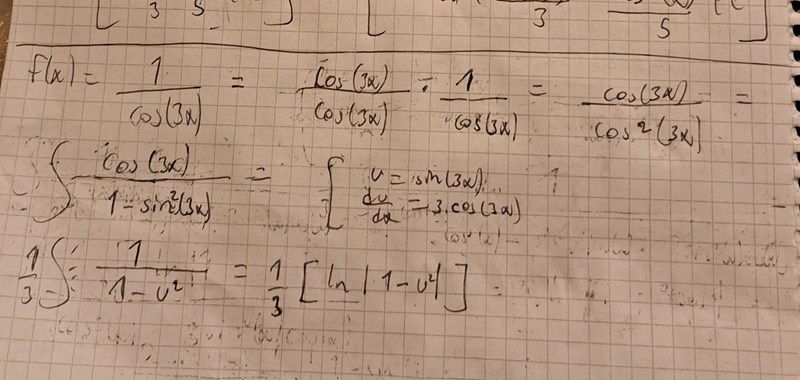 3 5
3 5
f(x) = 1/cos(3x) = cos(3x)/cos(3x) · 1/cos(3x) = cos(3x)/cos²(3x) =
∫ cos(3x)/(1 - sin²(3x)) = ∫ u = sin(3x)
du/dx = 3 cos(3x)
1/3 ∫ 1/(1 - u²) = 1/3 [ln |1 - u²|] =